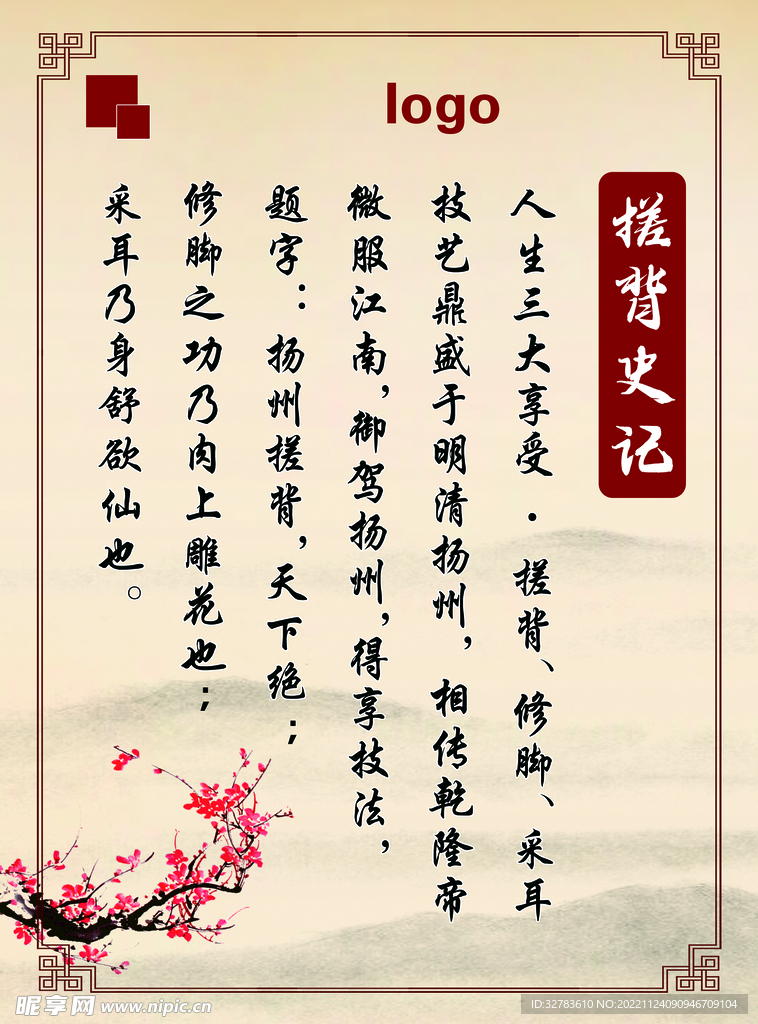 logo
搓背史记
人生三大享受·搓背、修脚、采耳
技艺鼎盛于明清扬州，相传乾隆帝
微服江南，御驾扬州，得享技法，
题字：扬州搓背，天下绝；
修脚之功乃肉上雕花也；
采耳乃身舒欲仙也。
昵享网 www.nipic.cn
ID:32783610 NO:20221124090946709104